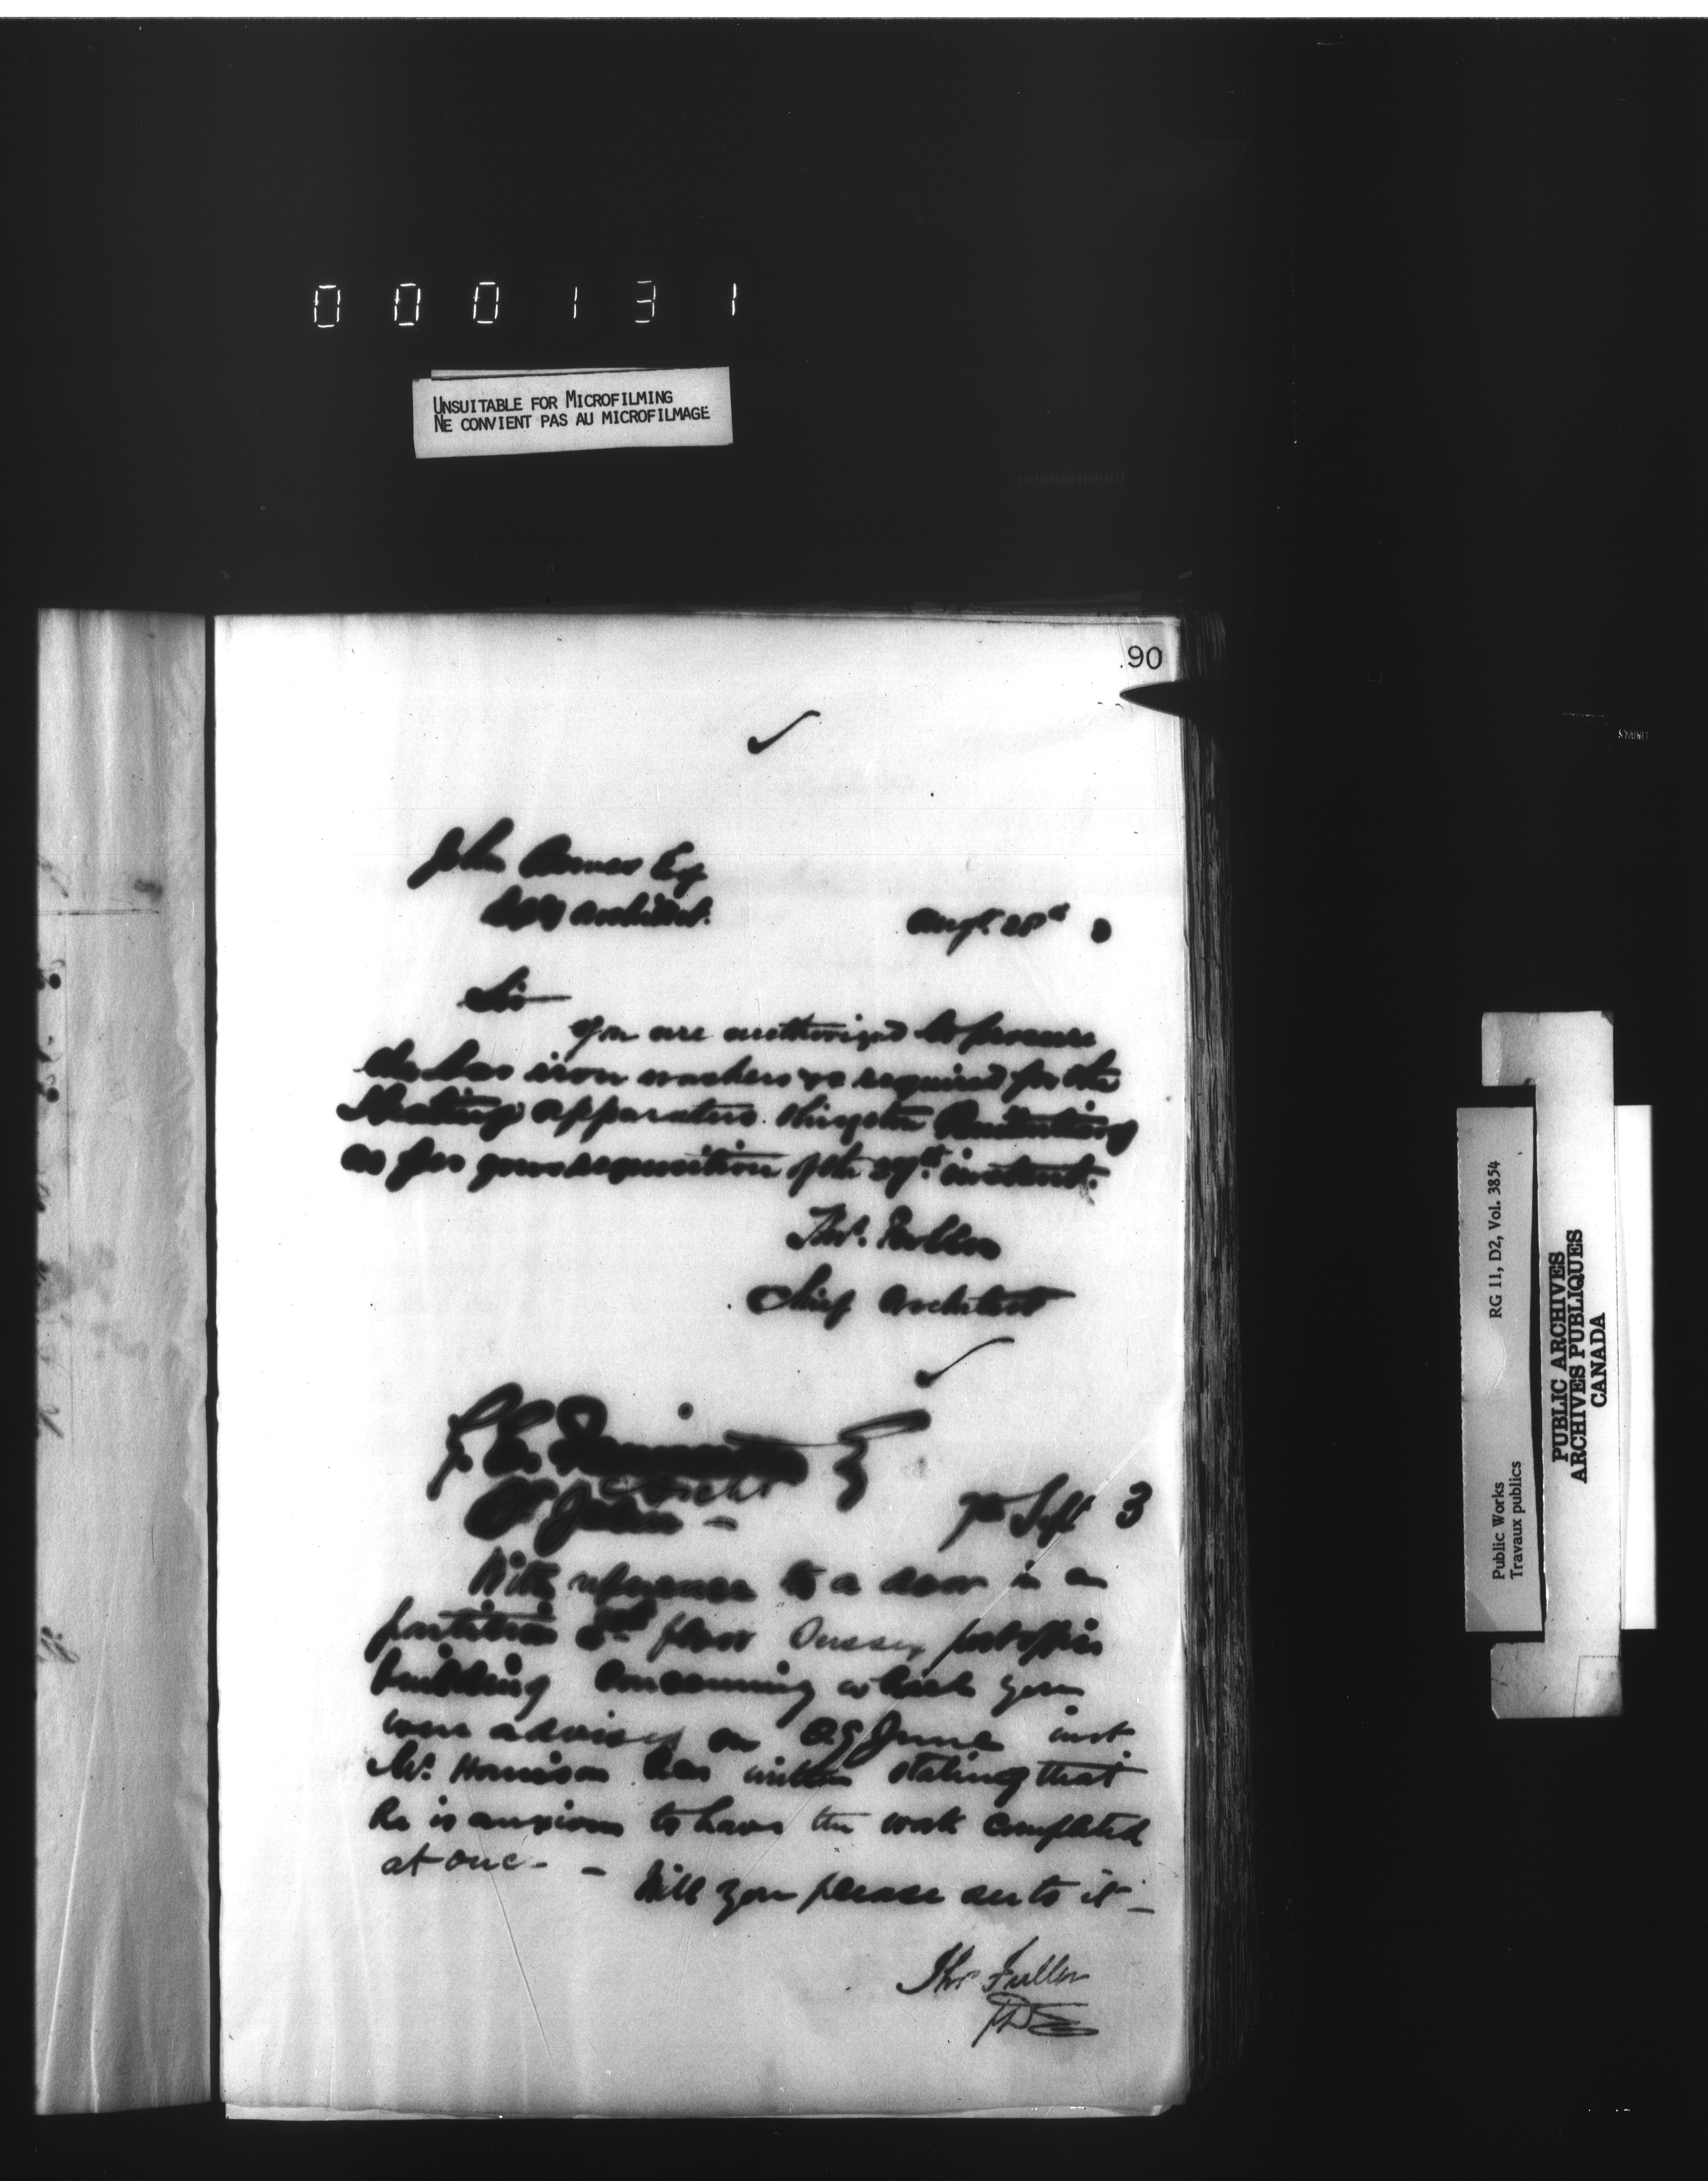 000131
UNSUITABLE FOR MICROFILMING
NE CONVIENT PAS AU MICROFILMAGE
90
John Bowes Esq
Architect.
Augt. 28th 3
Sir
You are authorized to procure
the iron washers &c required for the
Heating apparatus Kingston Penitentiary
as per your requisition of the 27th. instant.
Thos. Fuller
Chief Architect
Archt
St John –
7th Sept 3
With reference to a door in a
partition 2nd floor Sussex post office
building concerning which you
were advised on 29 June inst
Mr. Harrison has written stating that
he is anxious to have the work completed
at once - –
Will you please see to it –
Thos Fuller
RG 11, D2, Vol. 3854
Public Works
Travaux publics
PUBLIC ARCHIVES
ARCHIVES PUBLIQUES
CANADA